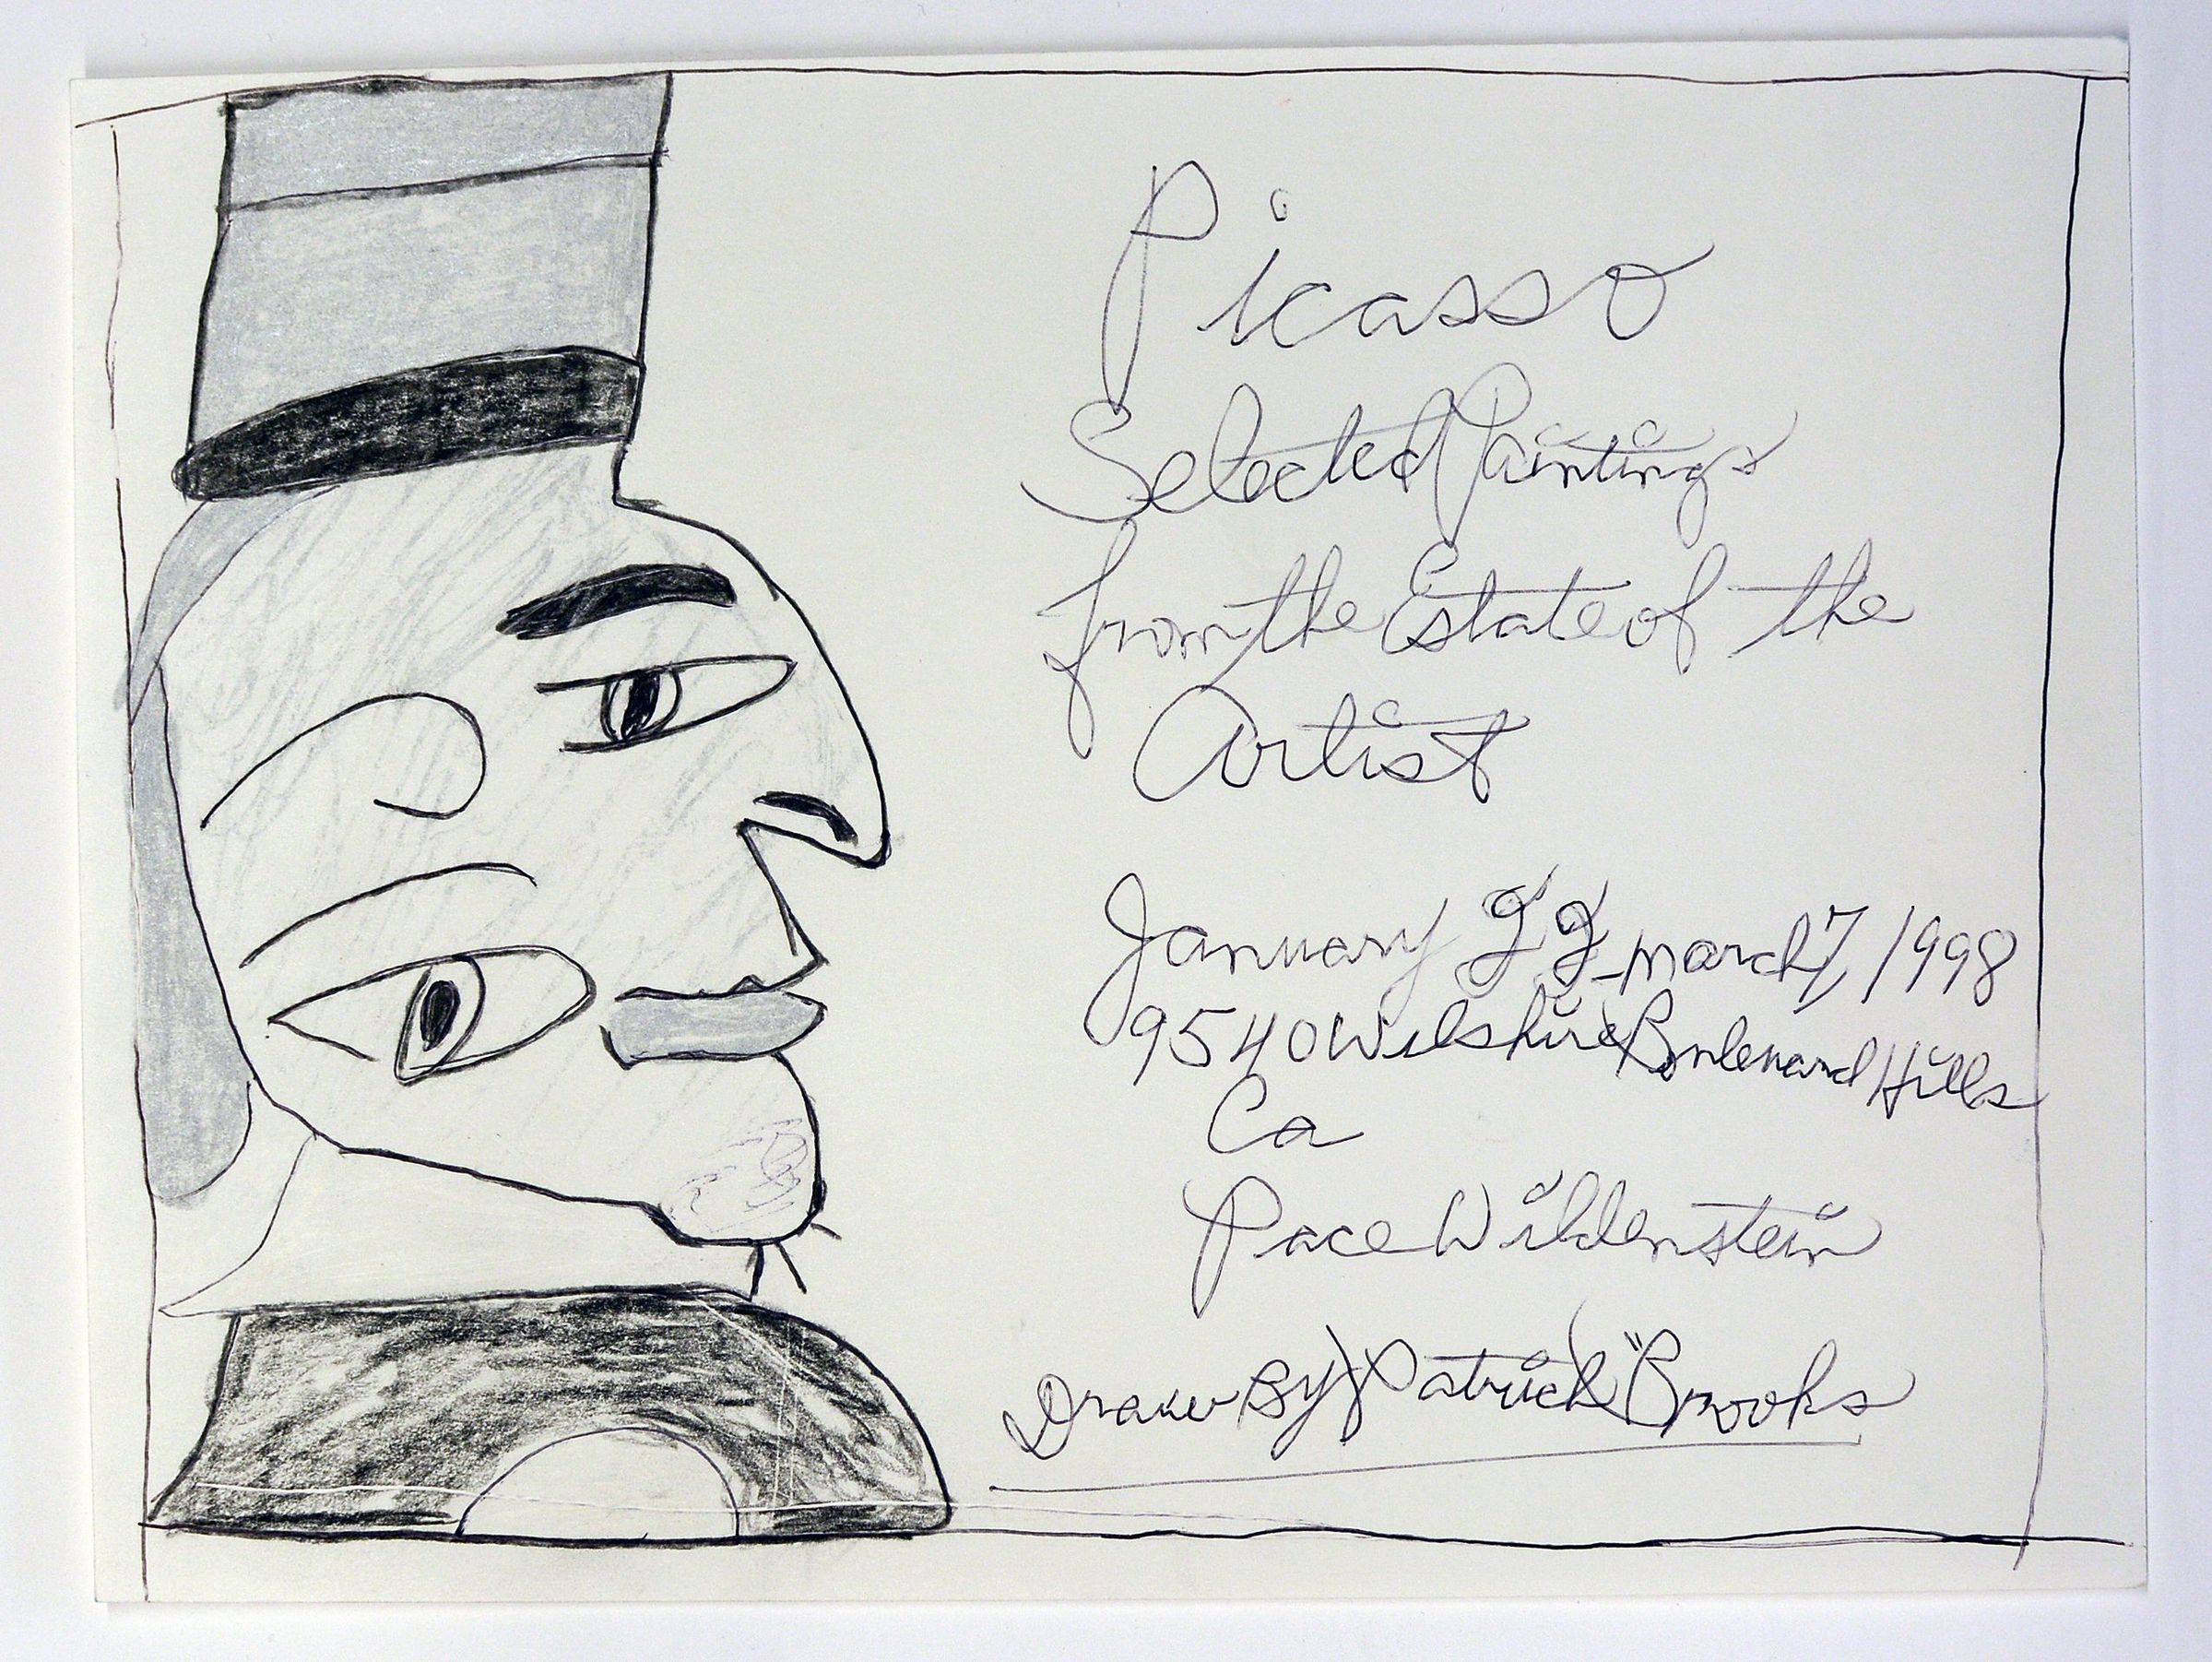 Picasso
Selected Paintings
from the Estate of the
Artist
January 22 - march 7, 1998
9540 Wilshire Boulevard Hills
Ca
Pace Wildenstein
Drawn By Patrick Brooks